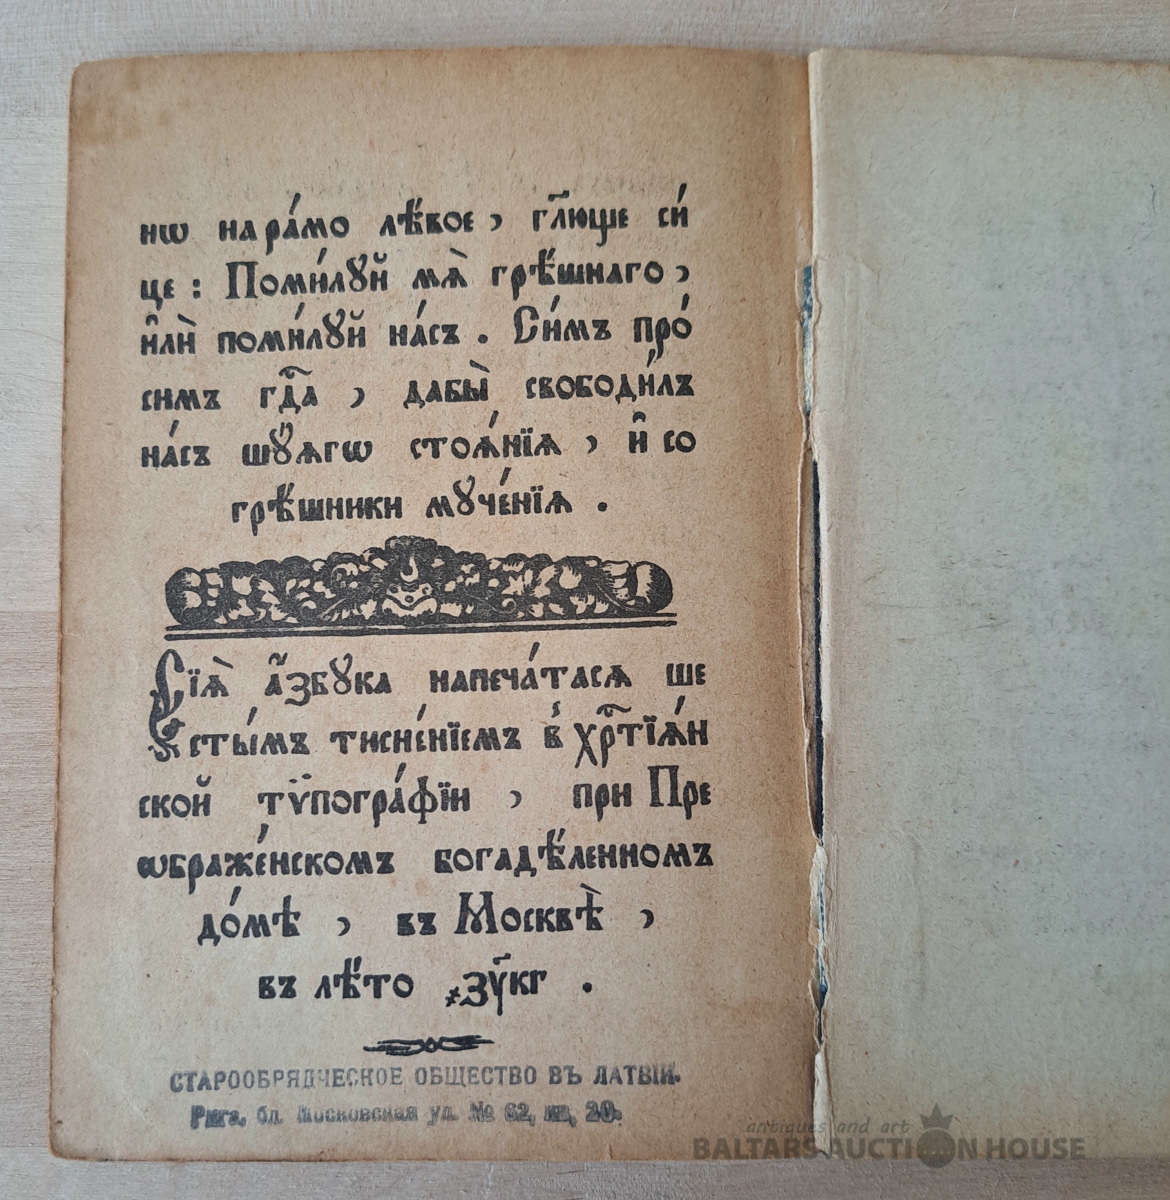 нѡ на ра́мо лѣ́вое, гл҃юще си́
це: Поми́лꙋй мѧ̀ грѣ́шнаго,
и҆лѝ поми́лꙋй на́съ. Си́мъ про́
симъ гдⷭ҇а, дабы̀ свободи́лъ
на́съ шꙋ́ѧгѡ стоѧ́нїѧ, и҆ со
грѣ́шники мꙋче́нїѧ.
Сїѧ̀ а҆́збꙋка напеча́тасѧ ше
сты́мъ тисне́нїемъ в̾ хрⷭ҇тїѧ́н
ской тѷпогра́фїи, при Пре
ѡбраже́нскомъ богадѣ́ленномъ
до́мѣ, въ Москвѣ̀,
въ лѣ́то ҂зу҃кг.
СТАРООБРЯДЧЕСКОЕ ОБЩЕСТВО ВЪ ЛАТВІИ.
Рига, бл. Московская ул. № 62, кв. 20.
antiques and art
BALTARS AUCTION HOUSE